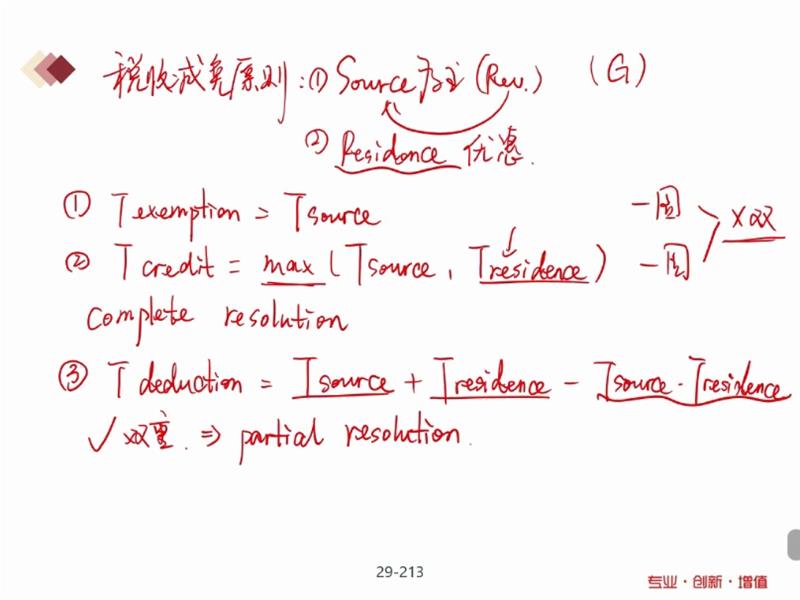 税收减免原则：① Source为主 (Rev.) (G)
② Residence 优惠.
① T exemption = T source 一国
② T credit = max ( T source , T residence ) 一国 > X双
complete resolution
③ T deduction = T source + T residence - T source · T residence
✓双重. ⇒ partial resolution.
29-213
专业·创新·增值